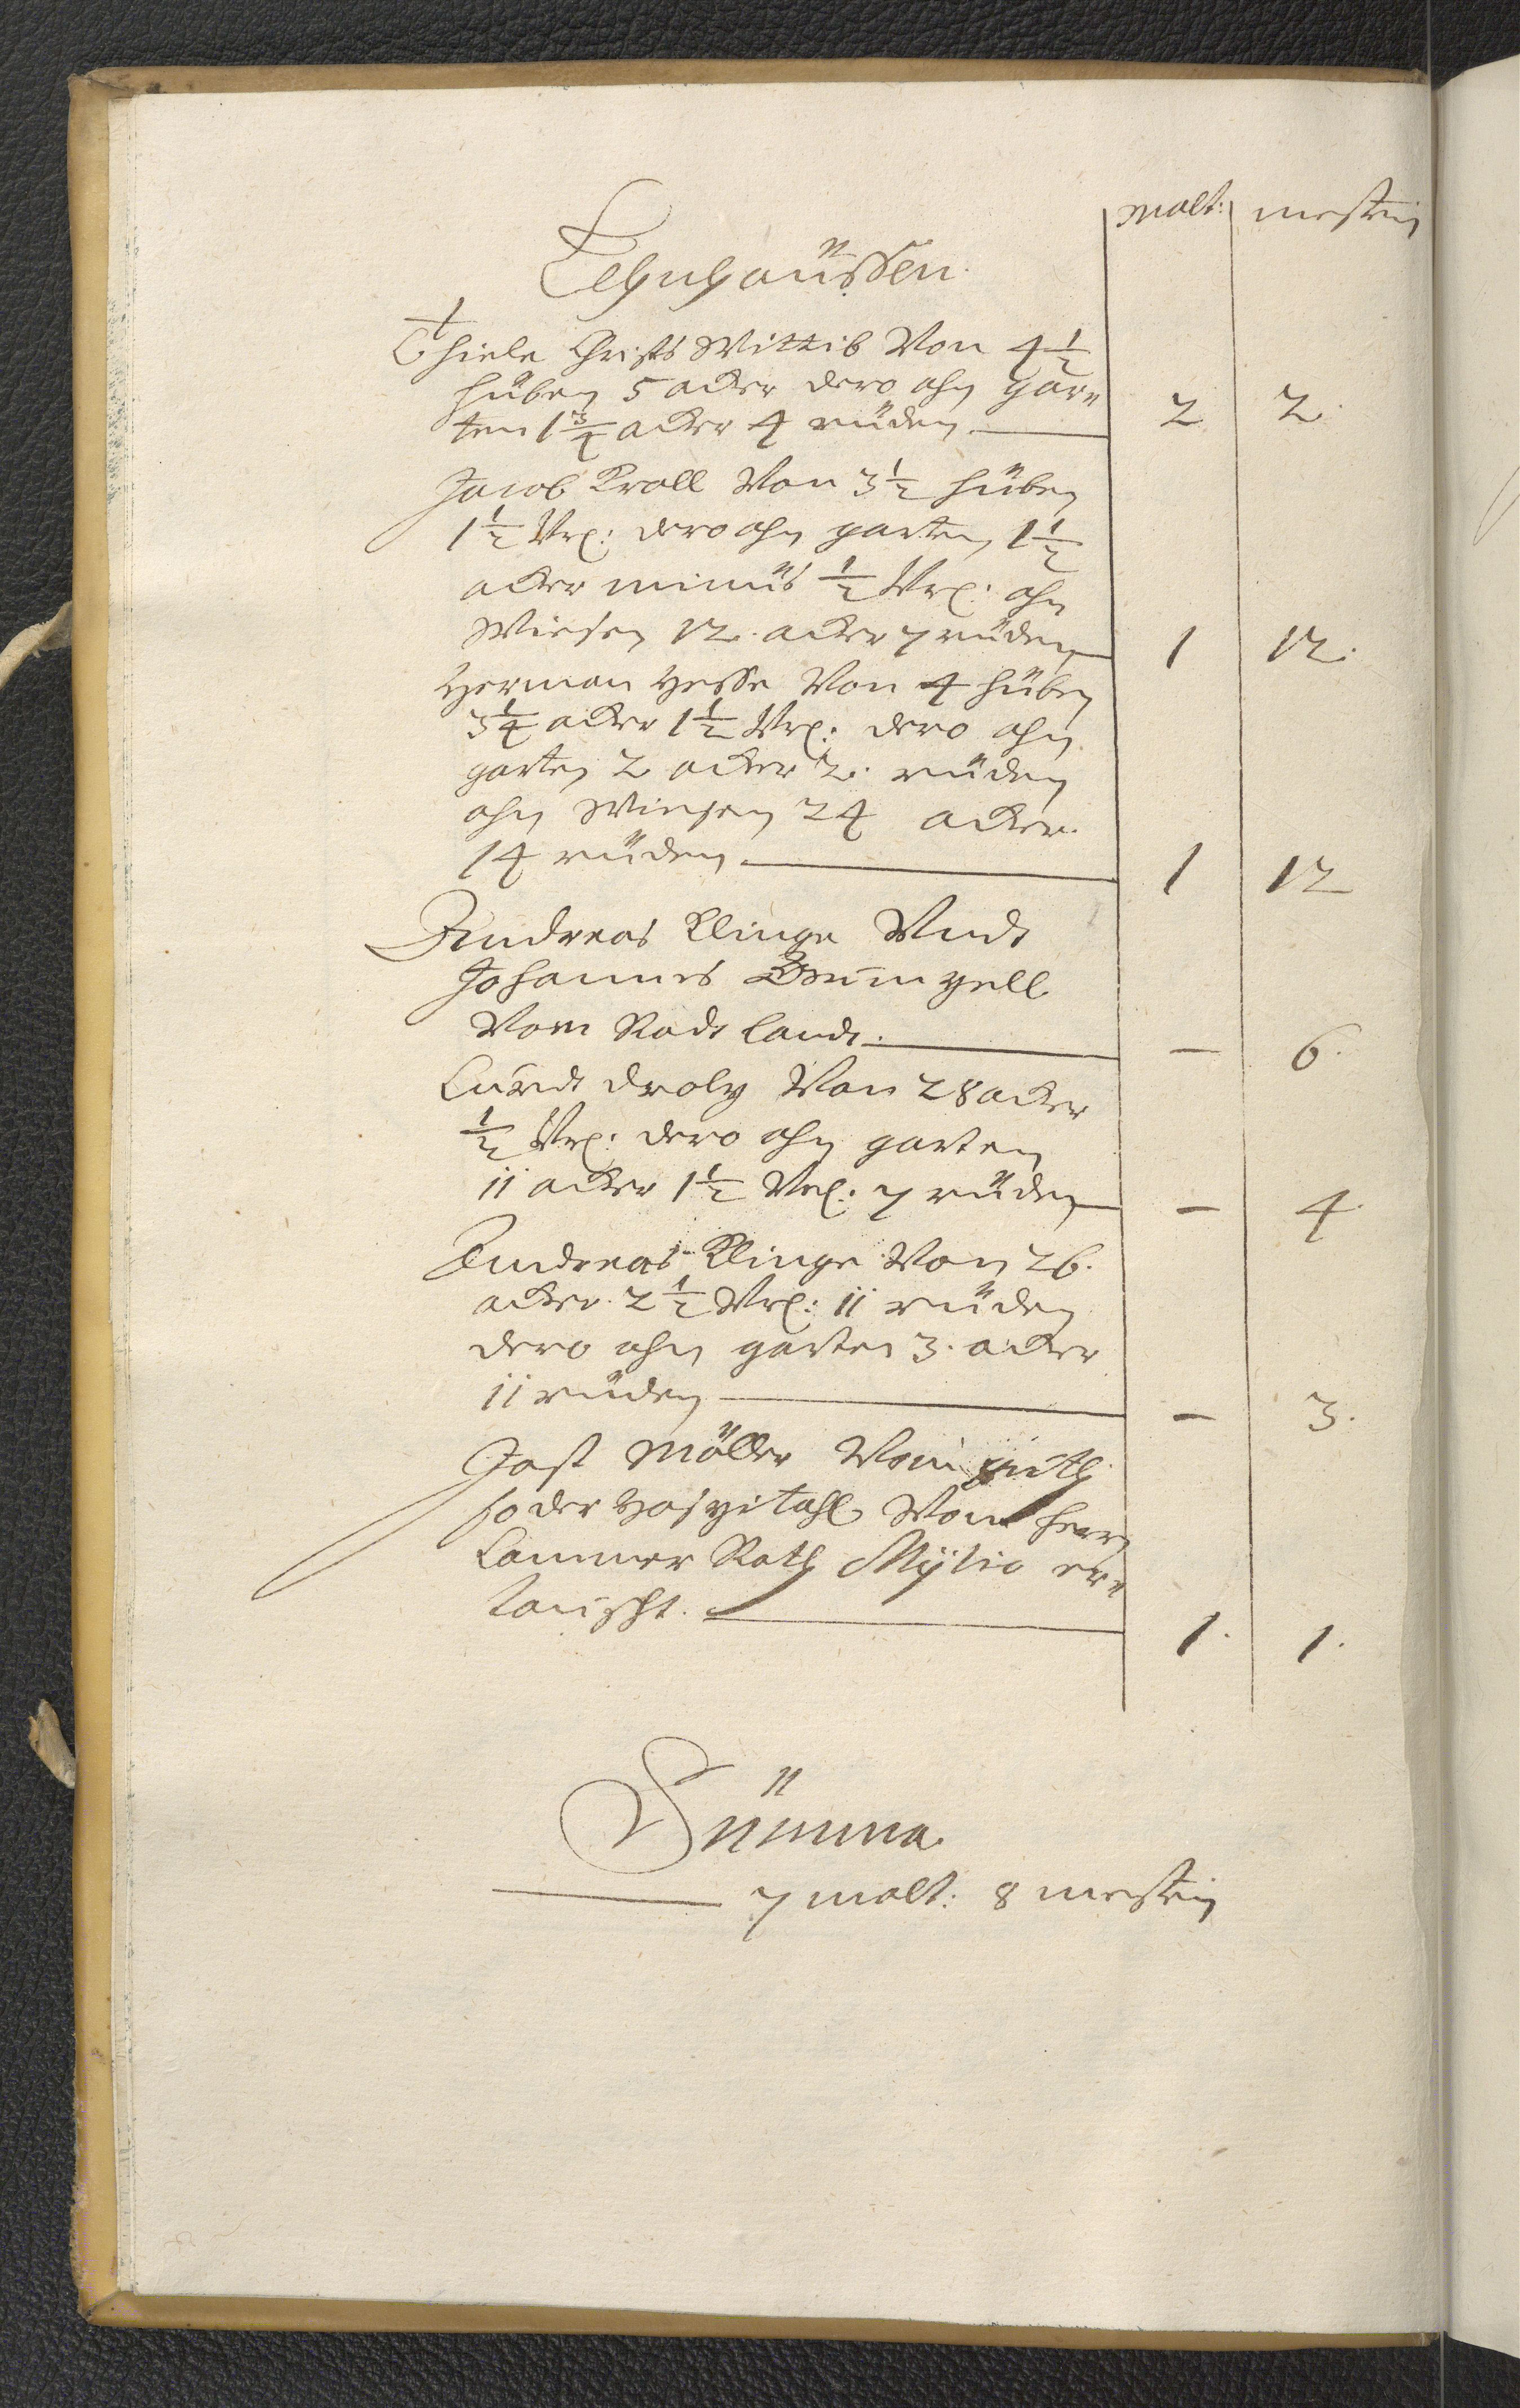 malt: mesten
Lehnhaüssen.
Thiele Christs Wittib Von 4 1/2
hüben 5 acker dero ahn gar„
ten 1 3/4 acker 4 rüden — 2 2.
Jacob Kroll Von 3 1/2 hüben
1 1/2 Vrl: dero ahn garten 1 1/2
acker minüs 1/2 Vrl: ahn
Wiesen 12. acker 7 rüden — 1 12.
Herman Hesse Von 4 hüben
3 1/4 acker 1 1/2 Vrl: dero ahn
garten 2 acker 2. rüden
ahn Wiesen 24 acker.
14 rüden — 1 12
Andreas Klinge Vndt
Johannes
Vom Rodt landt. — — 6.
Curdt Von 28 acker
1/2 Vrl: dero ahn garten
11 acker 1 1/2 Vrl: 7 rüden — — 4.
Andreas Klinge Von 26.
acker. 2 1/2 Vrl: 11 rüden
dero ahn garten 3. acker
11 rüden — — 3.
Jost Möller Vom guth
so der Hospitahl Vom herrn
Cammer Rath Mylio er„
tauscht. — 1. 1.
Sümma
— 7 malt: 8 mesten